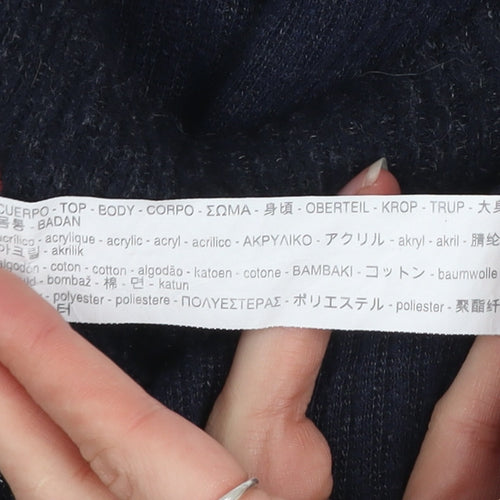 CUERPO - TOP - BODY - CORPO - ΣΩΜΑ - 身頃 - OBERTEIL - KROP - TRUP - 大身
몸통 - BADAN
acrílico - acrylique - acrylic - acryl - acrilico - ΑΚΡΥΛΙΚΟ - アクリル - akryl - akril - 腈纶
아크릴 - akrilik
algodón - coton - cotton - algodão - katoen - cotone - ΒΑΜΒΑΚΙ - コットン - baumwolle
- bombaž - 棉 - 면 - katun
- polyester - poliestere - ΠΟΛΥΕΣΤΕΡΑΣ - ポリエステル - poliester - 聚酯纤
터